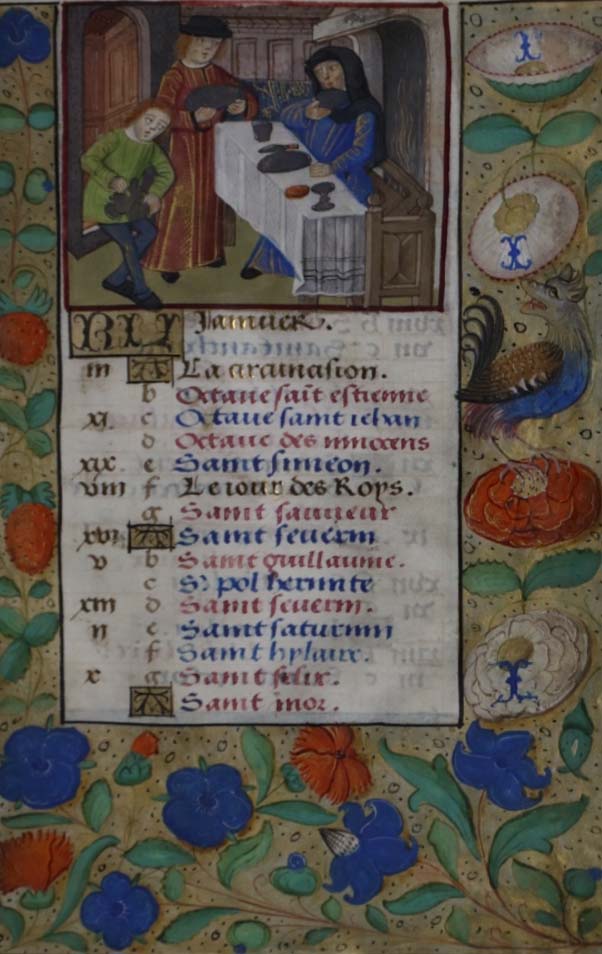 KL Januier.
iii A La circuncision.
b Octaue sait estienne
xi c Octaue saint iehan
d Octaue des innocens
xix e Saint simeon.
viii f Le iour des Roys.
g Saint sauueur
xvi A Saint seuerin
v b Saint guillaume.
c S. pol hermite
xiii d Saint seuerin.
ii e Saint saturnin
f Saint hylaire.
x g Saint felix.
A Saint mor.